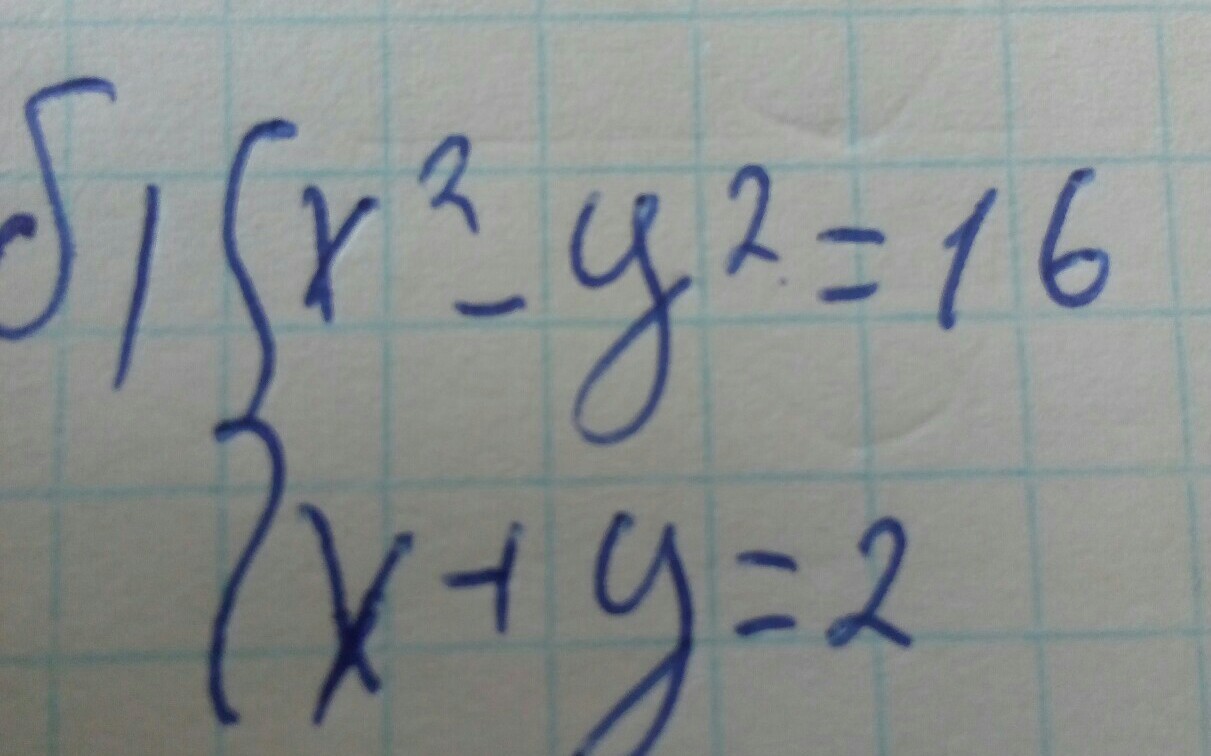 б) { x² - y² = 16
x + y = 2